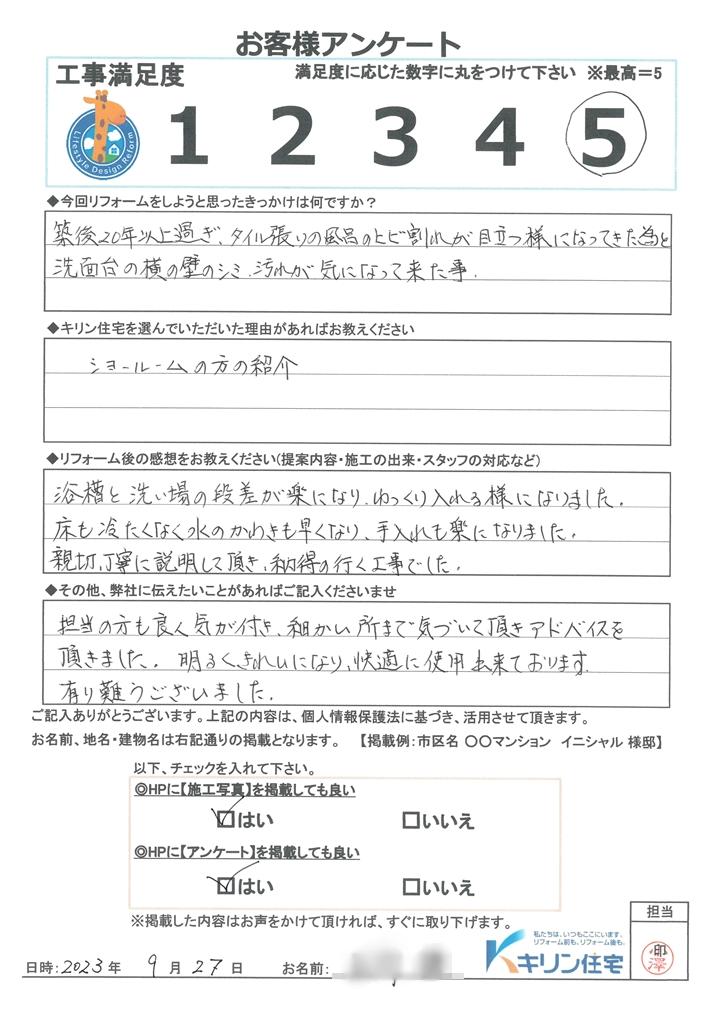 お客様アンケート
工事満足度 満足度に応じた数字に丸をつけて下さい ※最高＝5
Lifestyle Design Reform
1 2 3 4 5
◆今回リフォームをしようと思ったきっかけは何ですか？
築後20年以上過ぎ、タイル張りの風呂のヒビ割れが目立つ様になってきた為と
洗面台の横の壁のシミ、汚れが気になって来た事.
◆キリン住宅を選んでいただいた理由があればお教えください
ショールームの方の紹介
◆リフォーム後の感想をお教えください(提案内容・施工の出来・スタッフの対応など)
浴槽と洗い場の段差が楽になり、ゆっくり入れる様になりました.
床も冷たくなく水のかわきも早くなり、手入れも楽になりました.
親切、丁寧に説明して頂き、納得の行く工事でした.
◆その他、弊社に伝えたいことがあればご記入くださいませ
担当の方も良く気が付き、細かい所まで気づいて頂きアドバイスを
頂きました. 明るく、きれいになり、快適に使用出来ております.
有り難うございました.
ご記入ありがとうございます。上記の内容は、個人情報保護法に基づき、活用させて頂きます。
お名前、地名・建物名は右記通りの掲載となります。 【掲載例：市区名 〇〇マンション イニシャル 様邸】
以下、チェックを入れて下さい。
◎HPに【施工写真】を掲載しても良い
☑はい □いいえ
◎HPに【アンケート】を掲載しても良い
☑はい □いいえ
※掲載した内容はお声をかけて頂ければ、すぐに取り下げます。
担当
私たちは、いつもここにいます。
リフォーム前も、リフォーム後も。
キリン住宅
日時：2023年 9月27日 お名前：